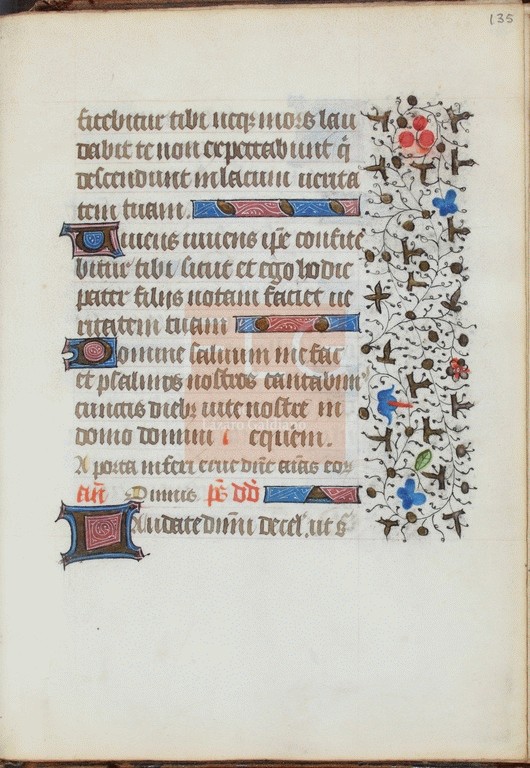 135
fitebitur tibi neqꝫ mors lau
dabit te non expectabunt q̄
descendunt in lacum uerita
tem tuam.
Uiuens uiuens ip̄e confite
bitur tibi sicut et ego hodie
pater filijs notam faciet ue
ritatem tuam
Domine saluum me fac
et psalmos nostros cantabim⁹
cunctis diebꝫ uite nostre in
domo domini equiem.
A porta inferi erue dn̄e aīas eoꝝ
añ Omnis. p̄s dd̄
Laudate dn̄m de cel. ut s
Lázaro Galdiano